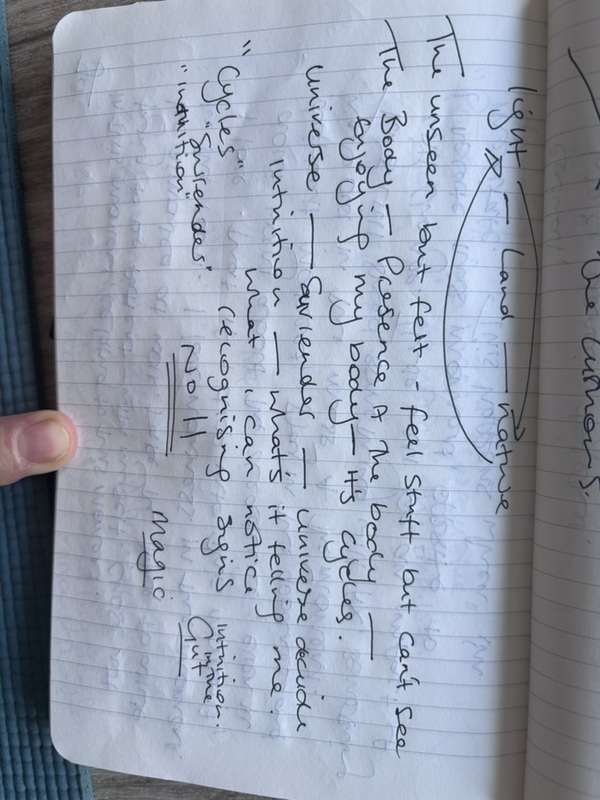 the curtains.
light — Land — nature
The unseen but felt - feel stuff but can't see
The Body — Presence of the body —
enjoying my body — it's cycles.
universe — Surrender — universe decide
intuition — what's it telling me
what i can notice
"Cycles" recognising signs
"Surrender"
"intuition"
No 11
Magic
intuition.
in the
Gut